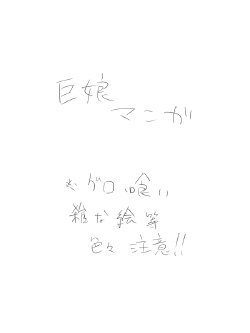 巨娘
マンガ
※グロ 喰い
雑な絵 等
色々 注意!!